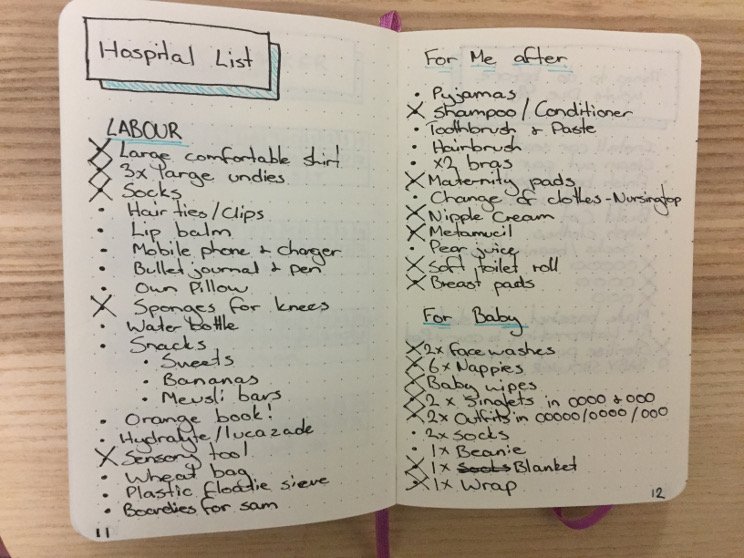 Hospital List
LABOUR
X Large comfortable shirt
X 3x large undies
X Socks
• Hair ties/clips
• Lip balm
• Mobile phone & charger
• Bullet journal & pen
• Own Pillow
X Sponges for knees
• Water bottle
• Snacks
• Sweets
• Bananas
• Meusli bars
• Orange book!
• Hydralyte/lucazade
X Sensory tool
• Wheat bag
• Plastic floatie sieve
• Boardies for sam
11
For Me after
• Pyjamas
X Shampoo/Conditioner
• Toothbrush & Paste
• Hairbrush
• x2 bras
X Maternity pads
• Change of clothes - Nursing top
X Nipple Cream
X Metamucil
• Pear juice
X Soft toilet roll
X Breast pads
For Baby
X 2x facewashes
X 6x Nappies
X Baby wipes
X 2x Singlets in 0000 & 000
X 2x Outfits in 00000/0000/000
• 2x socks
• 1x Beanie
X 1x Socks Blanket
X 1x Wrap
12